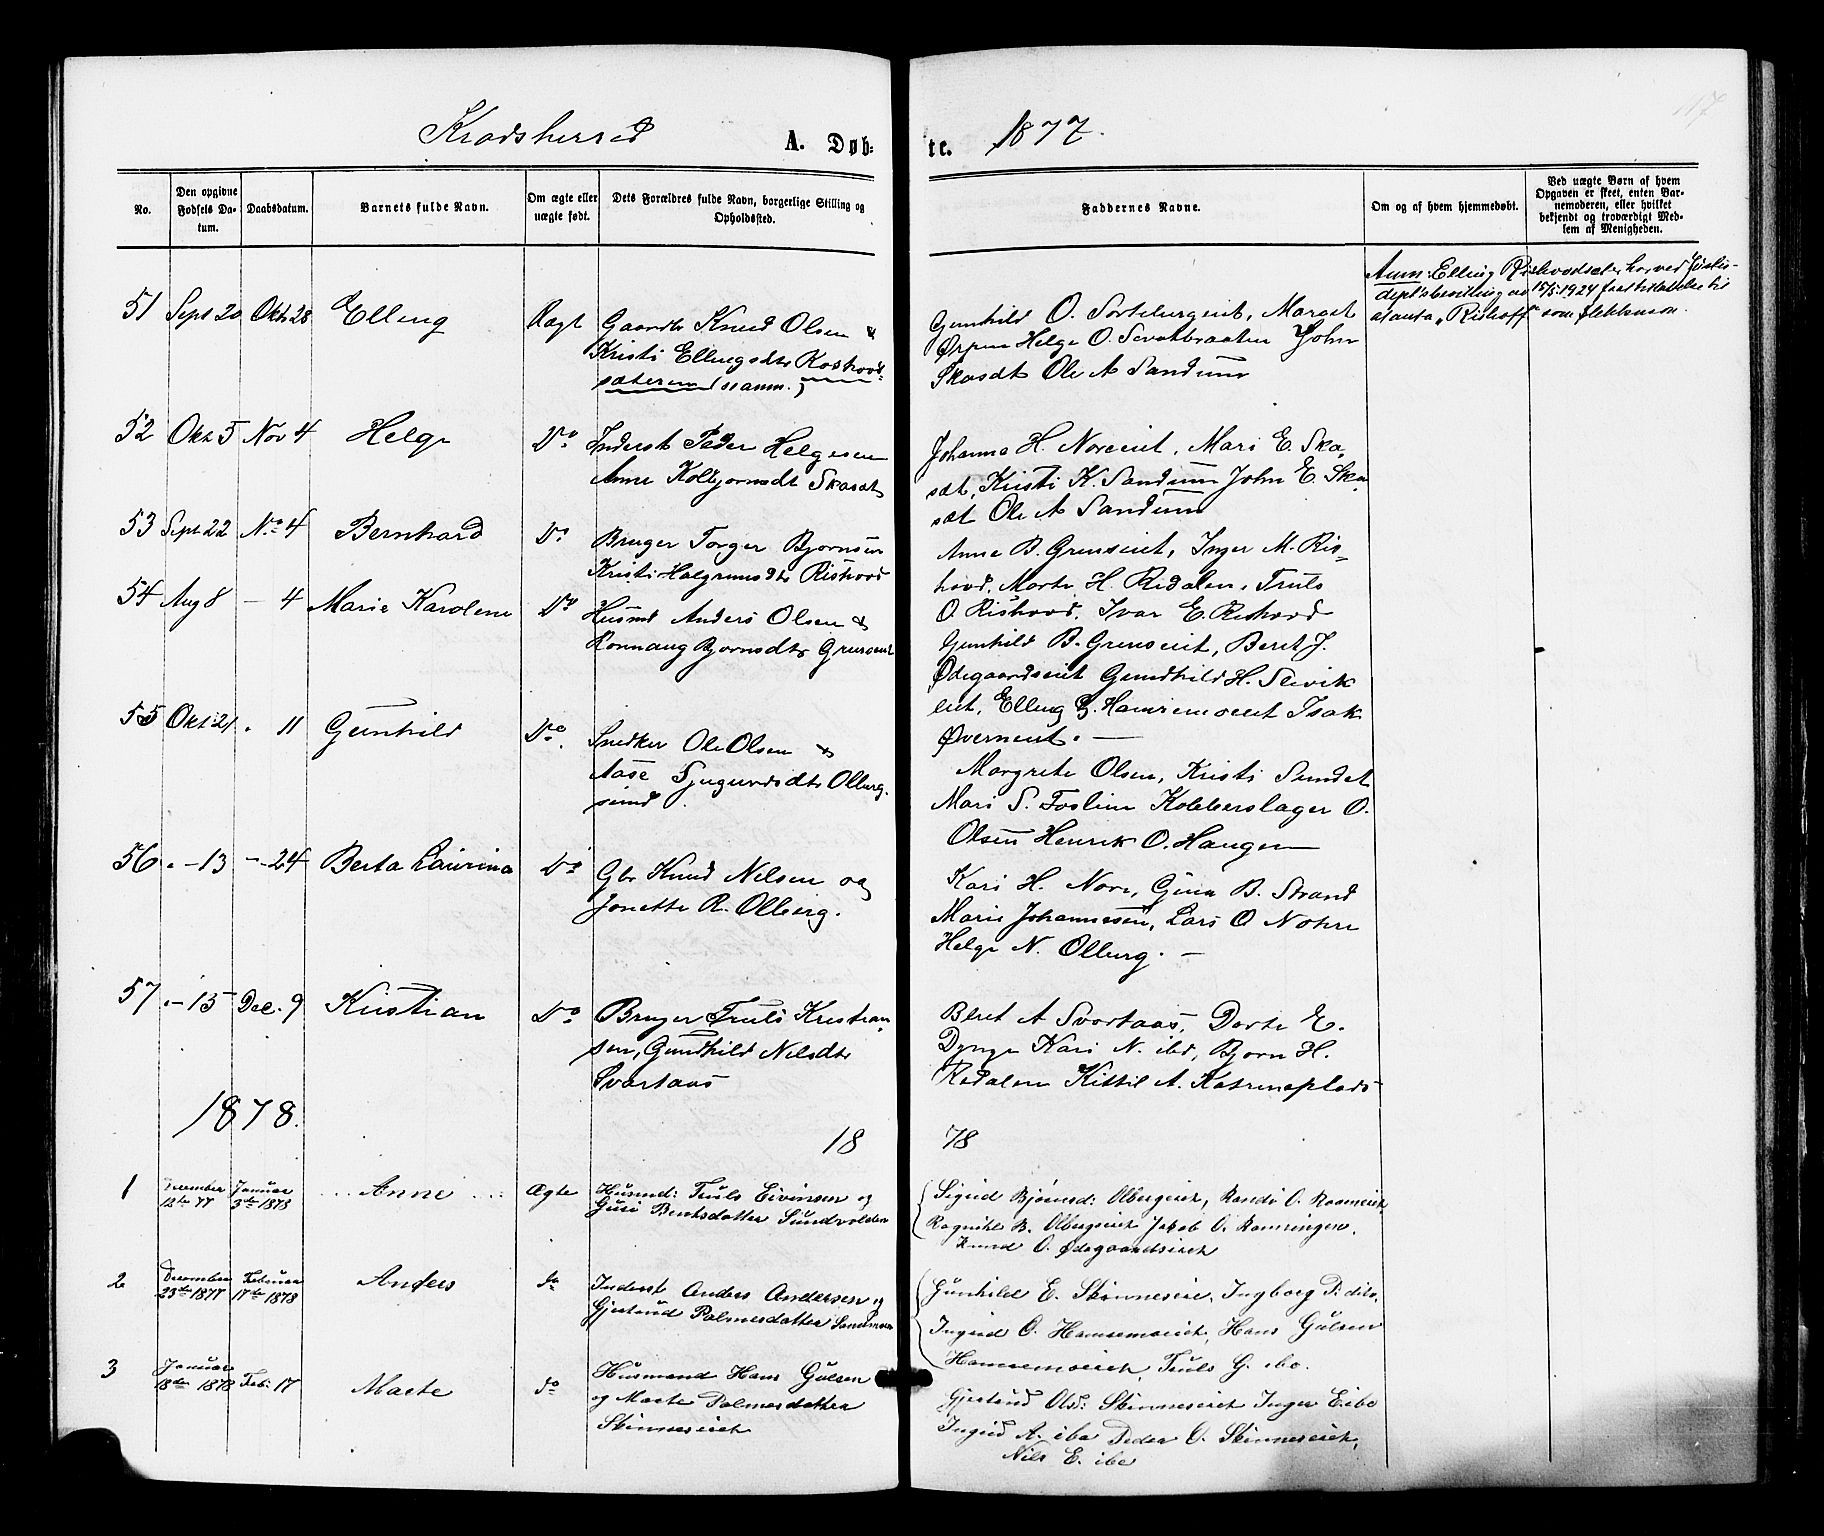 117
Krødsherred
A. Døb-
te.
1877.
No.
Den opgivne Fødsels Datum.
Daabsdatum.
Barnets fulde Navn.
Om ægte eller uægte født.
Dets Forældres fulde Navn, borgerlige Stilling og Opholdssted.
Faddernes Navne.
Om og af hvem hjemmedøbt.
Ved uægte Børn af hvem Opgaven er skeet, enten Barnemoderen, eller hvilket bekjendt og troværdigt Medlem af Menigheden.
51 Sept 20 Okt 28 Elling Ægt Gaardbr Knud Olsen &
Kristi Ellingsdtr
sæteren (samm.)
Gunhild O. Sortebergeiet, Margit
Ørpen Helge O. John
Skasdt Ole A Sandum
Anm: Elling Rishovdsæter har ved Justis-
dept's bevilling av 15/5 1924 faat tilladelse til
at anta „Rishoff" som slektsnavn.
52 Okt 5 Nov 4 Helge Do Inderst Peder Helgesen
Anne Kolbjørnsdt Skasæt
Johanne H. Noreeiet, Mari E. Ska-
sæt, Kristi K. Sandum John E. Ska
sæt Ole A Sandum
53 Sept 22 No 4 Bernhard Do Bruger Torger Bjørnsen
Kristi Halgrimsdtr Rishovd
Anne B. Grenseiet, Inger M. Ris-
hovd, Marte H. Redalen, Truls
O. Rishovd, Ivar E. Rishovd
54 Aug 8 — 4 Marie Karoline Do Husmd Anders Olsen &
Rønnaug Bjørnsdtr Grenseiet
Gunhild B. Grenseiet, Beret J.
Ødegaardseiet Gundhild H. Slevik
eiet, Elling G. Hamremoeiet Isak
Øverneiet. —
55 Okt 21 . 11 Gunhild Do. Snedker Ole Olsen &
Aase Sjugurdsdtr Olberg-
sund.
Margrete Olsen, Kristi Sundet
Mari S. Foslien Kobberslager O.
Olsen Henrik O. Haugen
56 . — 13 — . 24 Berta Laurina Do Gbr Knud Nilsen og
Jonette R. Olberg.
Kari H. Nore, Gina B. Strand
Marie Johannesen, Lars O Nohre
Helge N. Olberg. —
57 . — 15 Dec. 9 Kristian Do Bruger Truls Kristian-
sen, Gundhild Nilsdtr
Svartaas
Beret A Svartaas, Dorte E.
Dynge Kari N. ibd, Bjørn H.
Redalen Kittil A. Katrineplads
1878.
18 78
1 December 12te 77 Januar 3de 1878 Anne Ægte Husmd: Truls Eivinsen og
Guri Berthsdatter Sundvolden
Sigrid Bjørnsd: Olbergeiet, Randi O. Raameiet
Ragnild B. Olbergseiet Jakob O. Ramringen,
Knud O. Ødegaardseiet
2 December 23de 1877 Februar 17de 1878 Anders do Inderst Anders Andersen og
Gjertrud Palmesdatter Sandmoen
Gunhild E. Skinneseie, Ingborg P. dito,
Ingrid O. Hamremoeiet, Hans Gulsen
Hamremoeiet, Truls G. ibo.
3 Januar 18de 1878 Feb: 17 Marte do Husmand Hans Gulsen
og Marte Palmesdatter
Skinneseiet
Gjertrud Olsd: Skinneseiet Inger E ibo
Ingrid A. ibo Peder O. Skinneseiet,
Nils E. ibo